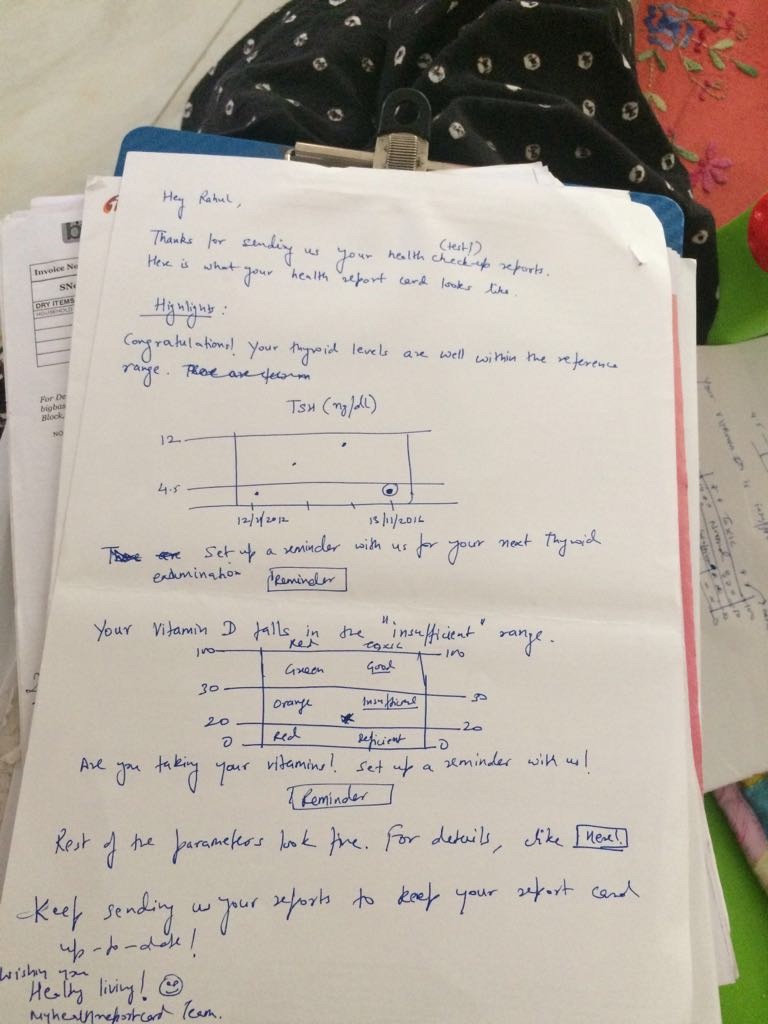 Hey Rahul,
(test)
Thanks for sending us your health checkup reports.
Here is what your health report card looks like.
Highlights:
Congratulations! Your thyroid levels are well within the reference
range.
TSH (ng/dl)
12
4.5
12/ /2012 13/11/2016
Set up a reminder with us for your next thyroid
examination Reminder
Your Vitamin D falls in the "insufficient" range.
Red toxic
100 100
Green Good
30 30
Orange Insufficient
20 20
Red Deficient
0 0
Are you taking your vitamins? Set up a reminder with us!
Reminder
Rest of the parameters look fine. For details, Here!
Keep sending us your reports to keep your report card
up-to-date!
Wishing you
Healthy living!
Myhealthreportcard Team.
Invoice No
SN
DRY ITEMS
HOUSEHOLD
For De
bigbas
Block,
NO